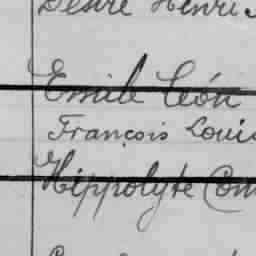 Désiré Henri
Emile Léon
François Louis
Hippolyte